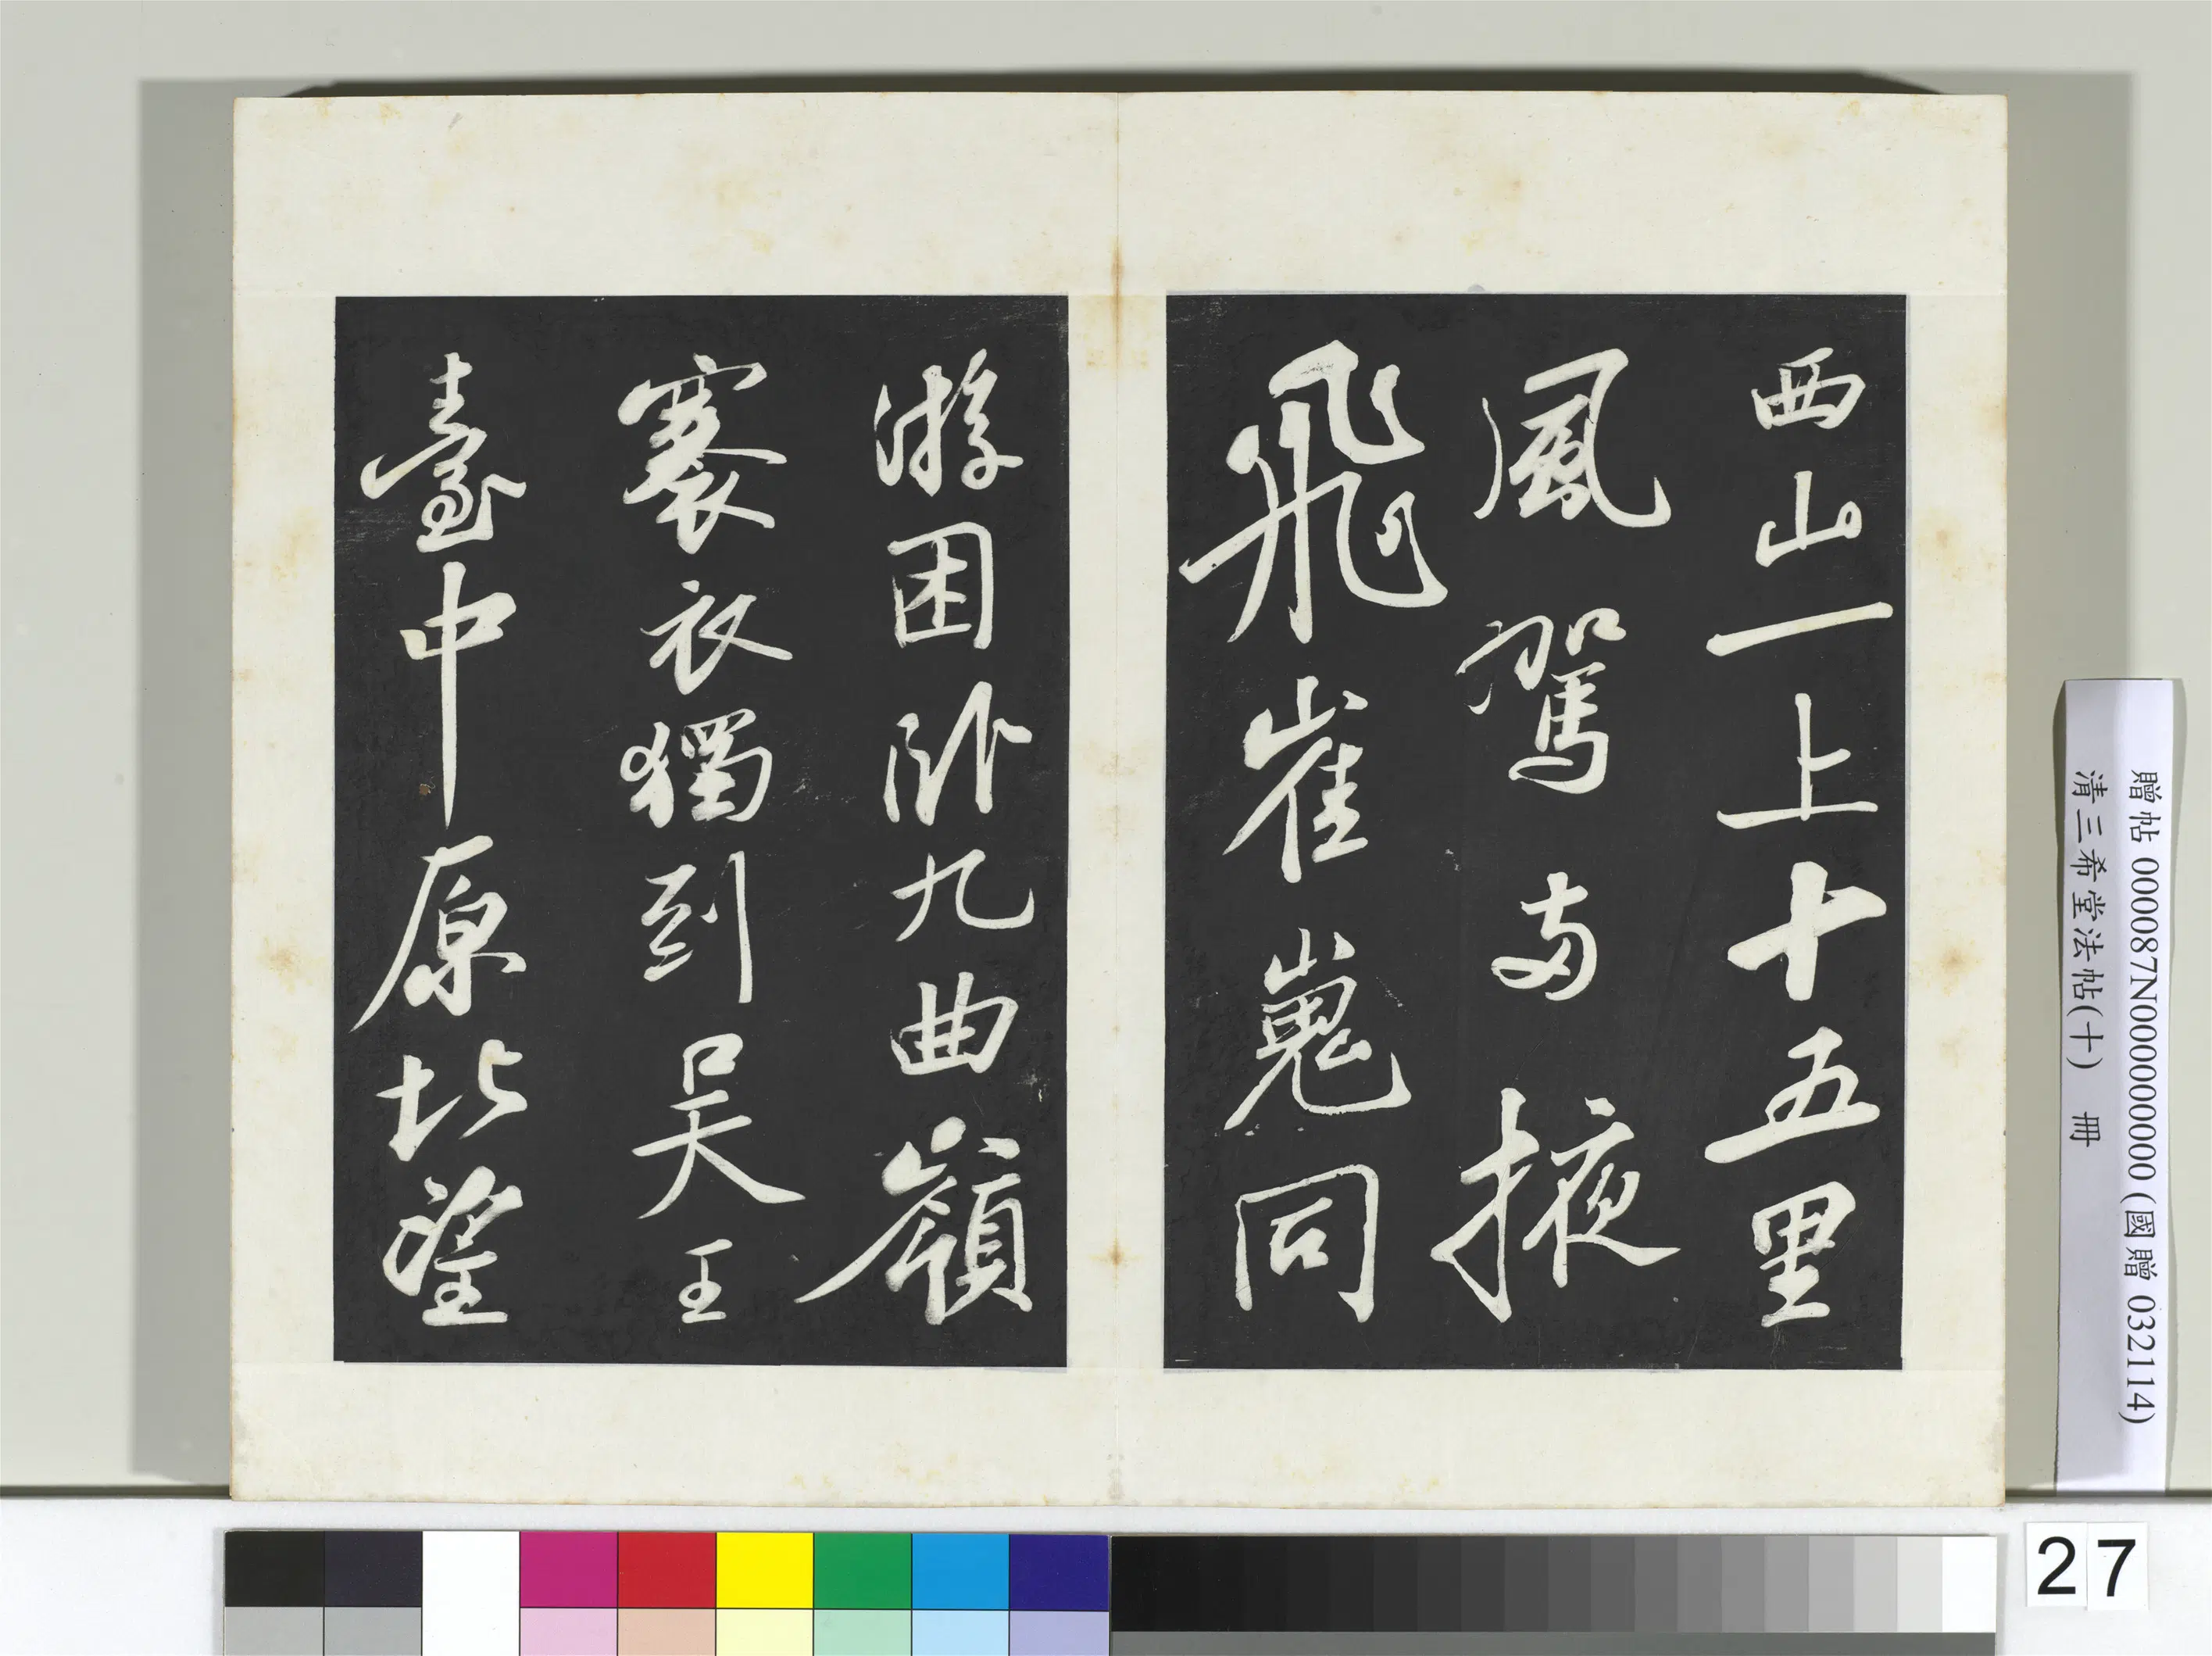 西山一上十五里
風駕兩掖
飛崔嵬同
游困臥九曲嶺
褰衣獨到吳王
臺中原北望
贈帖 000087N000000000 (國贈 032114)
清三希堂法帖(十) 冊
27